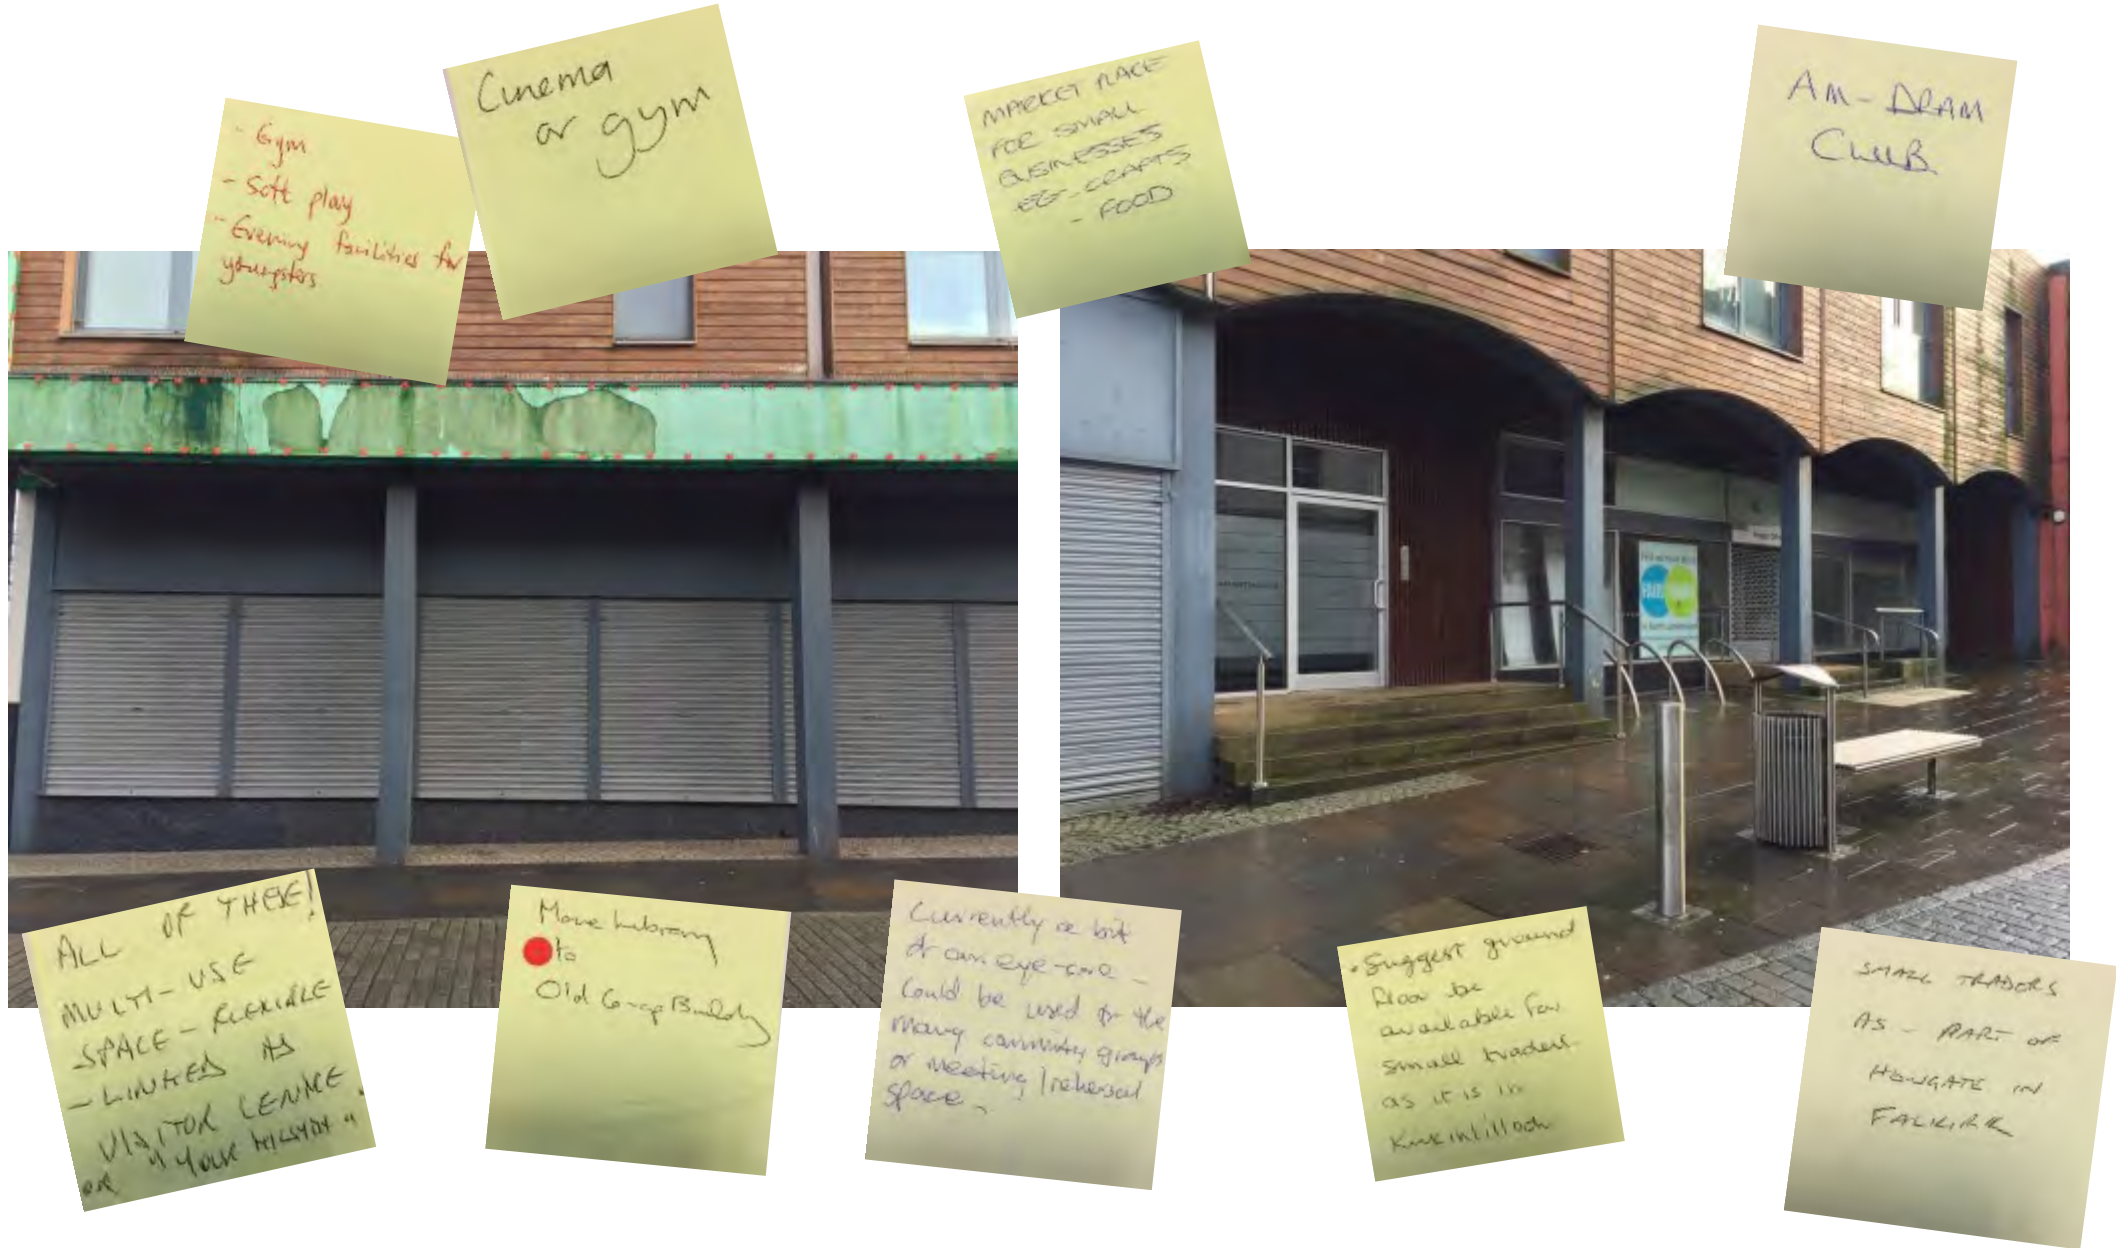 - Gym
- Soft play
- Evening facilities for
youngsters
Cinema
or gym
MARKET PLACE
FOR SMALL
BUSINESSES
EG - CRAFTS
- FOOD
AM-DRAM
CLUB
ALL OF THESE!
MULTI-USE
SPACE - FLEXIBLE
- LINKED AS
VISITOR CENTRE
OR "YOUR HISTORY"
Move Library
to
Old Co-op Building
Currently a bit
of an eye-sore -
Could be used for the
many community groups
or meeting/rehersal
space -
• Suggest ground
floor be
available for
small traders
as it is in
Kirkintilloch
SMALL TRADERS
AS - PART OF
HOWGATE IN
FALKIRK